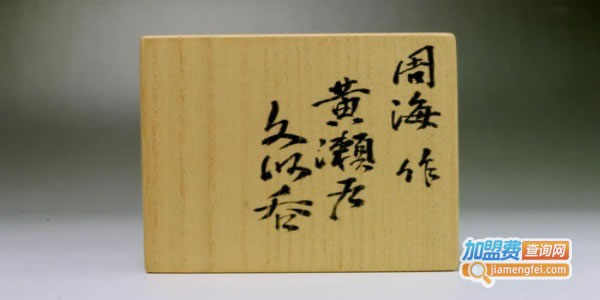 周海作
黄瀬戸
久以呑
加盟费查询网
jiamengfei.com